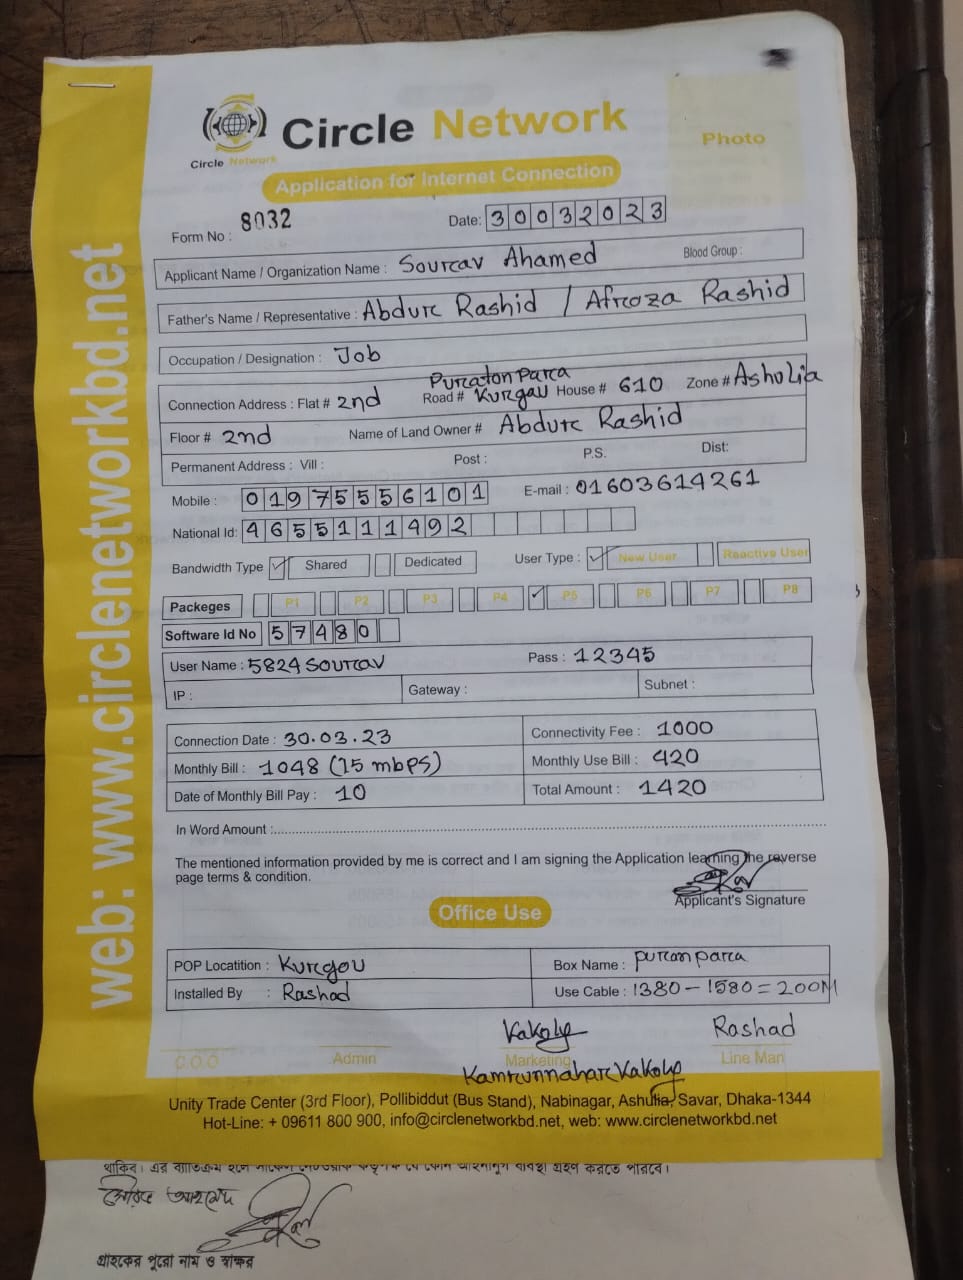 web: www.circlenetworkbd.net
Circle Network
Circle Network
Photo
Application for Internet Connection
Form No : 8032
Date: 30032023
Applicant Name / Organization Name : Sourav Ahamed Blood Group :
Father's Name / Representative : Abdur Rashid / Afroza Rashid
Occupation / Designation : Job
Puraton Para
Connection Address : Flat # 2nd Road # Kurgau House # 610 Zone # Ashulia
Floor # 2nd Name of Land Owner # Abdur Rashid
Permanent Address : Vill : Post : P.S. Dist:
Mobile : 01975556101 E-mail : 01603614261
National Id: 4655111492
Bandwidth Type ✓ Shared Dedicated User Type : ✓ New User Reactive User
Packeges P1 P2 P3 P4 ✓ P5 P6 P7 P8
Software Id No 57480
User Name : 5824sourav Pass : 12345
IP : Gateway : Subnet :
Connection Date : 30.03.23 Connectivity Fee : 1000
Monthly Bill : 1048 (15 mbps) Monthly Use Bill : 420
Date of Monthly Bill Pay : 10 Total Amount : 1420
In Word Amount :
The mentioned information provided by me is correct and I am signing the Application learning the reverse
page terms & condition.
Applicant's Signature
Office Use
POP Locatition : Kurgou Box Name : puranpara
Installed By : Rashad Use Cable : 1380-1580=200M
Kakoly Rashad
C.O.O Admin Marketing Line Man
Kamrunnahar Kakoly
Unity Trade Center (3rd Floor), Pollibiddut (Bus Stand), Nabinagar, Ashulia, Savar, Dhaka-1344
Hot-Line: + 09611 800 900, info@circlenetworkbd.net, web: www.circlenetworkbd.net
থাকিব। এর ব্যতিক্রম হলে করতে পারবে।
সৌরভ আহমেদ
গ্রাহকের পুরো নাম ও স্বাক্ষর